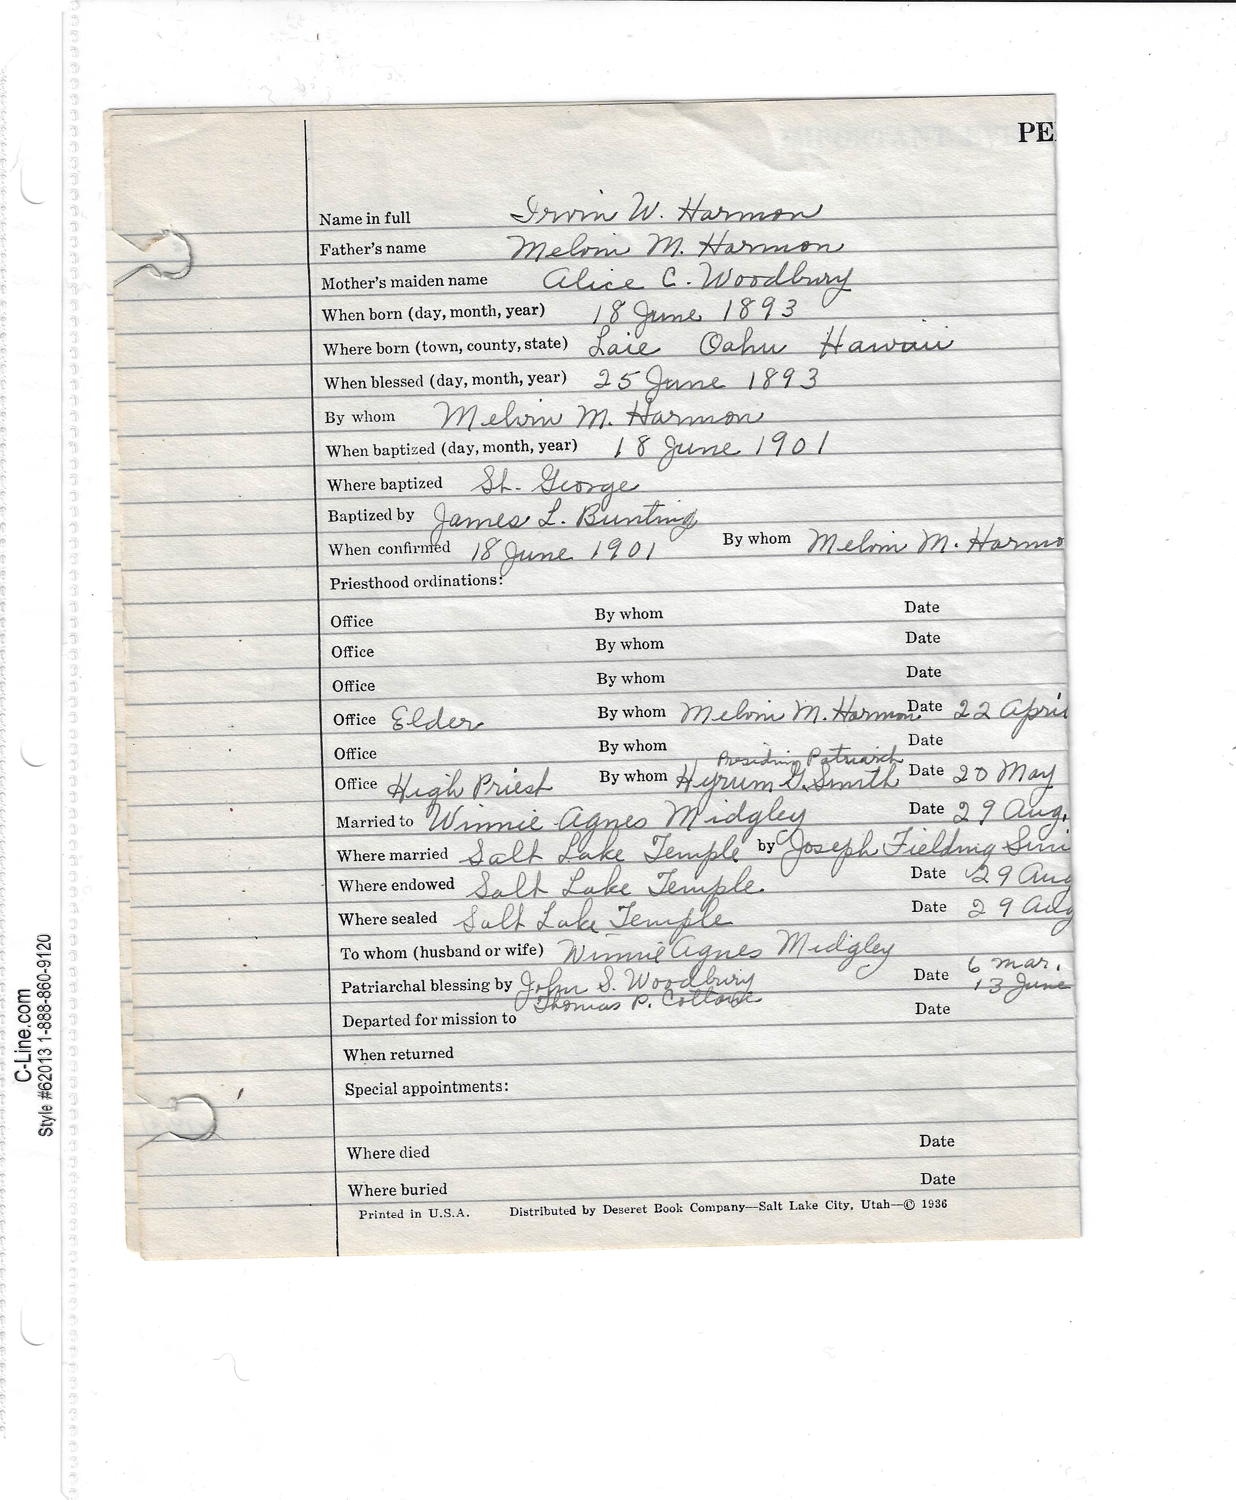 PE
Name in full Irvin W. Harmon
Father's name Melvin M. Harmon
Mother's maiden name Alice C. Woodbury
When born (day, month, year) 18 June 1893
Where born (town, county, state) Laie Oahu Hawaii
When blessed (day, month, year) 25 June 1893
By whom Melvin M. Harmon
When baptized (day, month, year) 18 June 1901
Where baptized St. George
Baptized by James L. Bunting
When confirmed 18 June 1901 By whom Melvin M. Harmo
Priesthood ordinations:
Office By whom Date
Office By whom Date
Office By whom Date
Office Elder By whom Melvin M. Harmon Date 22 April
Office By whom Date
Presiding Patriarch
Office High Priest By whom Hyrum G. Smith Date 20 May
Married to Winnie Agnes Midgley Date 29 Aug.
Where married Salt Lake Temple by Joseph Fielding Smi
Where endowed Salt Lake Temple Date 29 Aug
Where sealed Salt Lake Temple Date 29 Aug
To whom (husband or wife) Winnie Agnes Midgley
Patriarchal blessing by John S. Woodbury Date 6 Mar.
Thomas P. 13 June
Departed for mission to Date
When returned
Special appointments:
Where died Date
Where buried Date
Printed in U.S.A. Distributed by Deseret Book Company—Salt Lake City, Utah—© 1936
C-Line.com
Style #62013 1-888-860-9120